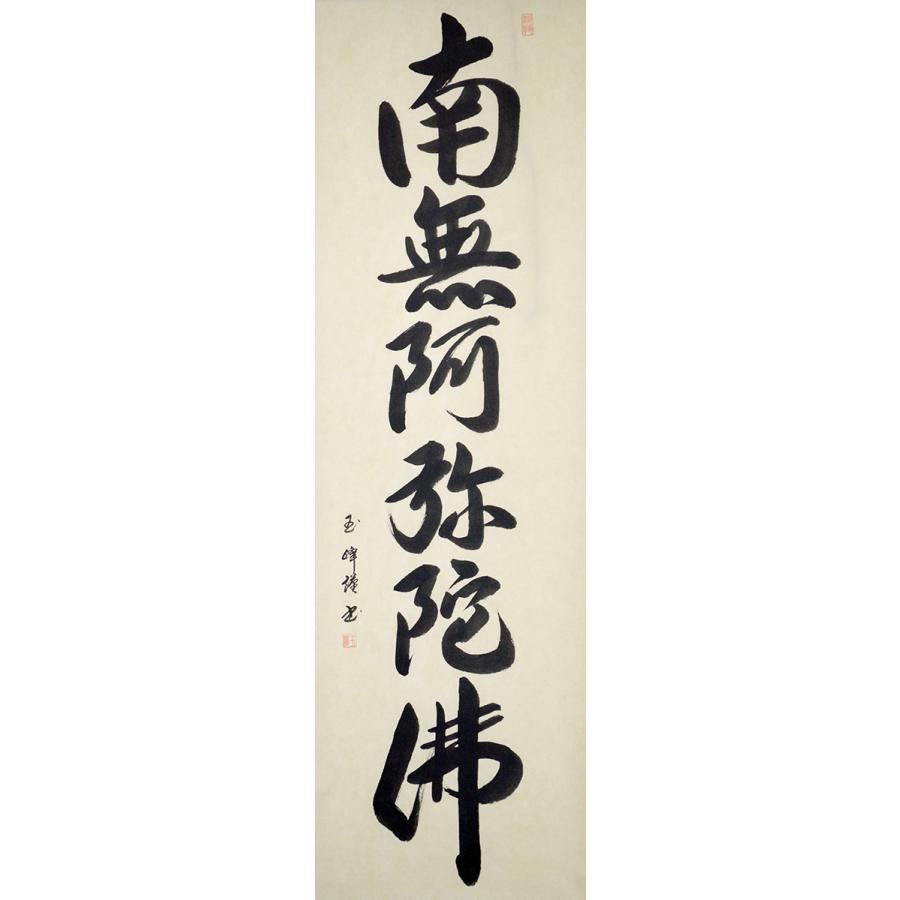 南無阿弥陀佛
玉峰謹書